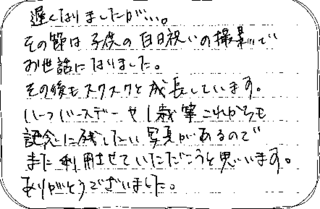 遅くなりましたが、、、。
その節は子供の百日祝いの撮影で
お世話になりました。
その後もスクスクと成長しています。
ハーフバースデーや1歳等これからも
記念に残したい写真があるので
また利用させていただこうと思います。
ありがとうございました。